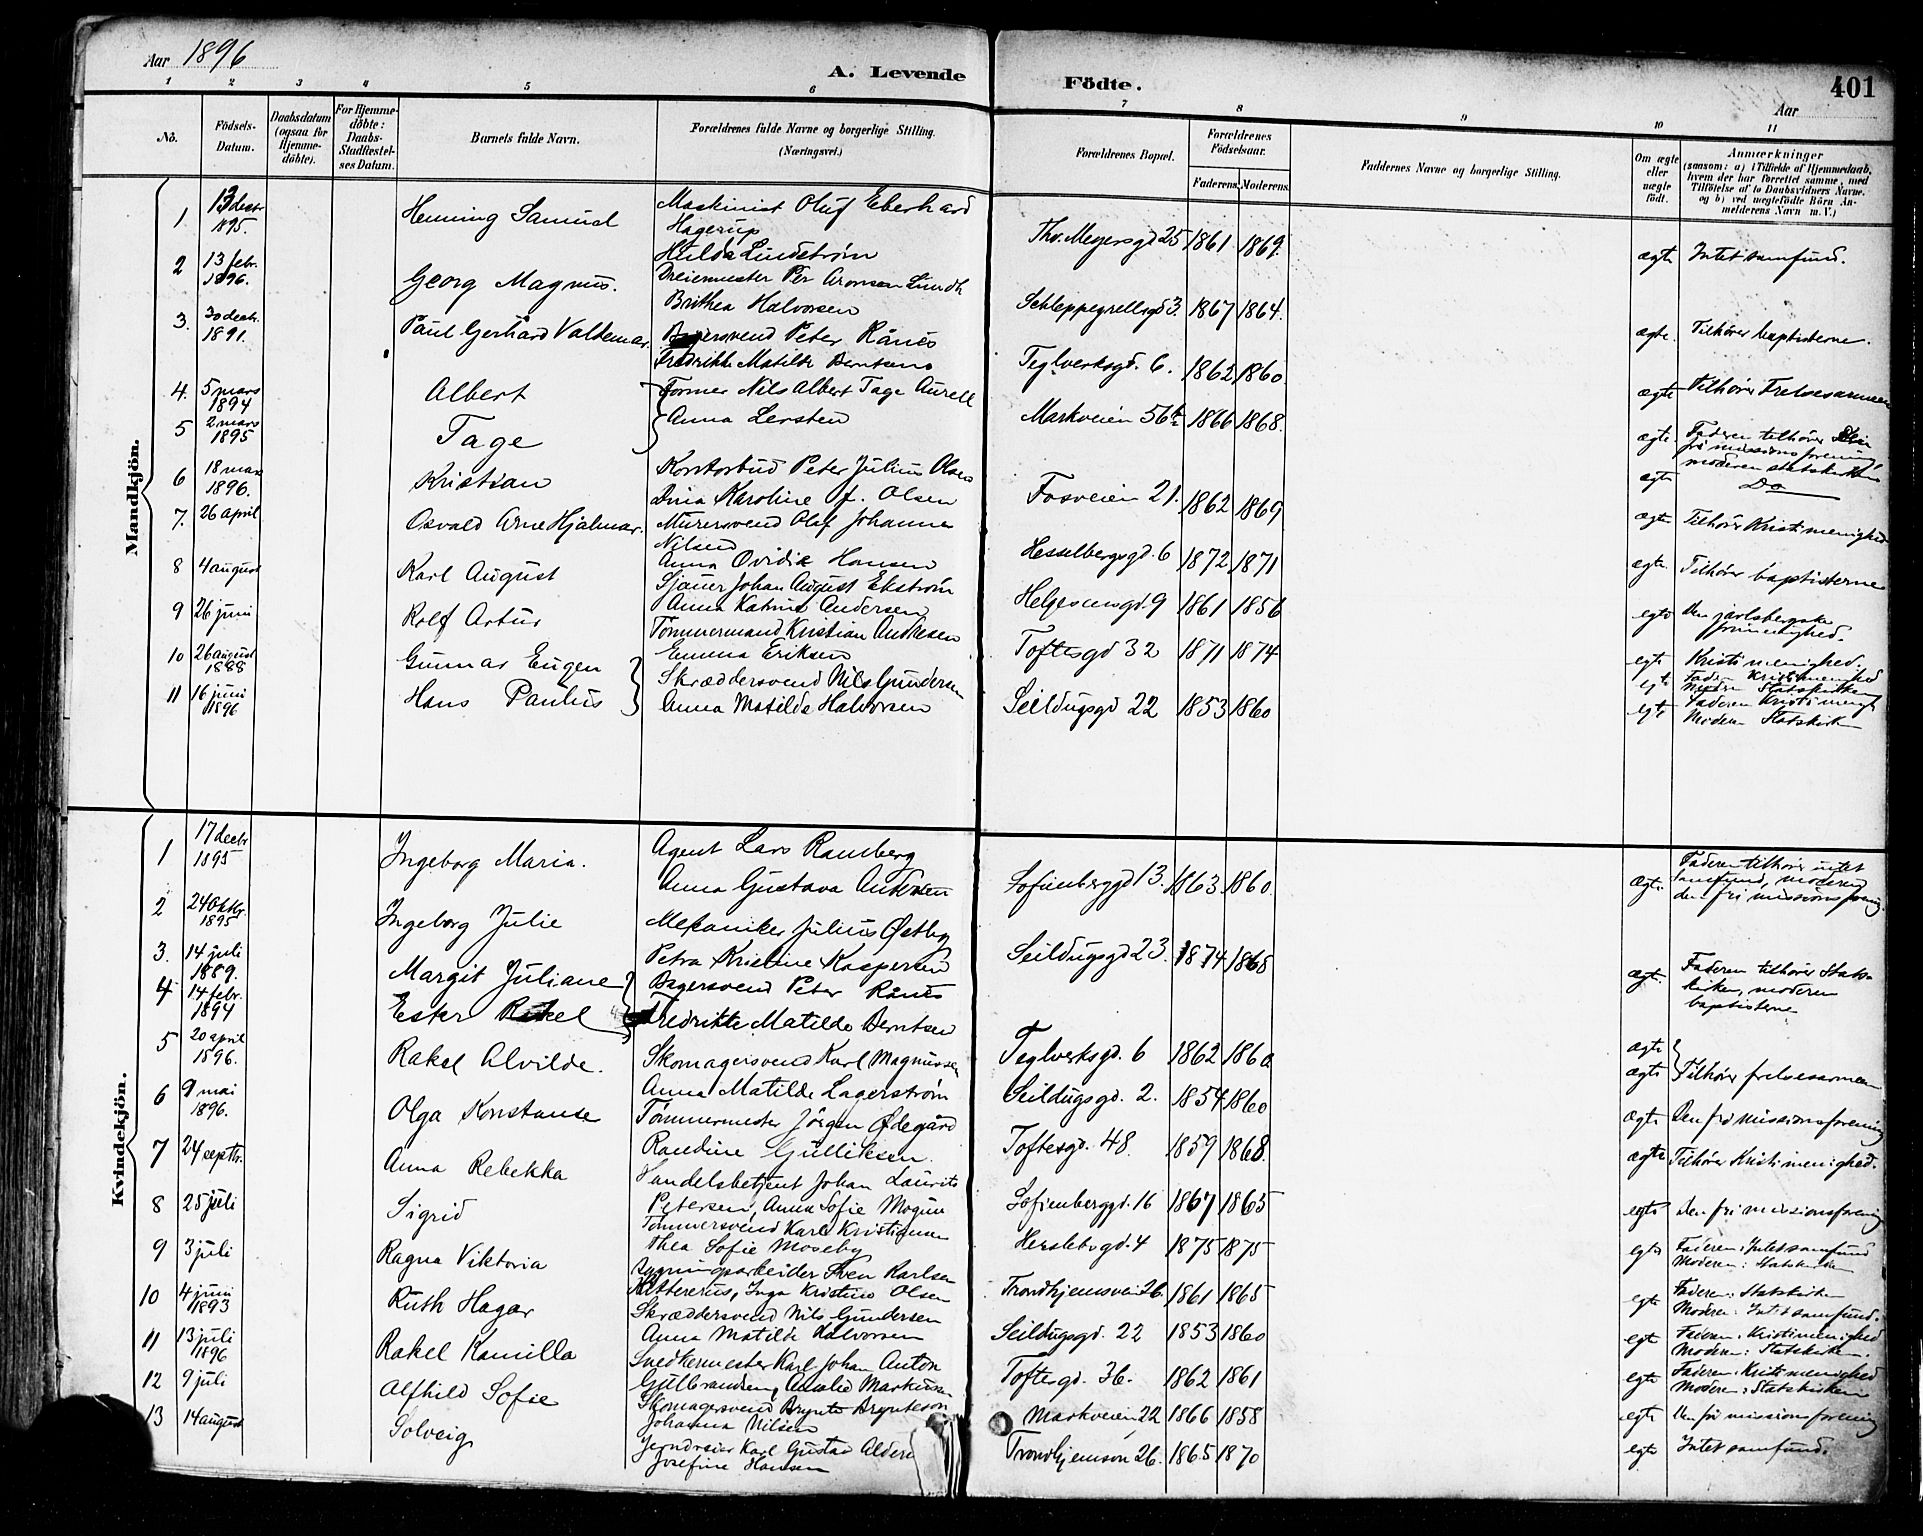 Aar 1896
A. Levende
Födte.
401
Aar
1 2 3 4 5 6 7 8 9 10 11
No.
Födsels-
Datum.
Daabsdatum
(ogsaa for
Hjemme-
döbte).
For Hjemme-
döbte:
Daabs-
Stadfæstel-
ses Datum.
Barnets fulde Navn.
Forældrenes fulde Navne og borgerlige Stilling.
(Næringsvei.)
Forældrenes Bopæl.
Forældrenes
Födselsaar.
Faderens. Moderens.
Faddernes Navne og borgerlige Stilling.
Om ægte
eller
uægte
födt.
Anmærkninger
(saasom: a) i Tilfælde af Hjemmedaab,
hvem der har forrettet samme, med
Tilföielse af to Daabsvidners Navne,
og b) ved uægtefödte Börn An-
melderens Navn m. V.)
Mandkjön.
1 13 decbr 1895. Henning Samuel
Maskinist Oluf Eberhard
Hagerup
Hulda Lindstrøm
Thv. Meyersgd 25 1861 1869. ægte Intet samfund.
2 13 febr. 1896. Georg Magnus.
Dreiermester Per Aronsen Lundh
Brithea Halvorsen
Schleppegrellsgd 3. 1867 1864. ægte. Tilhører baptisterne.
3. 30 decbr. 1891. Paul Gerhard Valdemar.
Bagersvend Peter Rånes
Fredrikke Matilde Berntsen
Teglverksgd. 6. 1862 1860. ægte Tilhører Frelsesarmeen
4. 5 mars 1894 Albert
Former Nils Albert Tage Aurell
5 2 mars 1895 Tage
Anna Lersten
Markveien 56b 1866 1868. ægte. Faderen tilhører Den
fri missionsforening,
moderen statskirken
ægte Do
6 18 mars 1896. Kristian
Kontorbud Peter Julius Olsen
Dina Karoline f. Olsen
Fosveien 21. 1862 1869 ægte Tilhører Kristi menighed
7. 26 april Osvald Arne Hjalmar.
Murersvend Olaf Johannes
Nilsen
Anna Ovidia Hansen
Hesselbergsgd. 6 1872 1871 ægte. Tilhører baptisterne
8 4 august Karl August
Sjauer Johan August Ekstrøm
Anna Katrine Andersen
Helgesensgd. 9 1861 1856 egte Den jarlsbergske
frimenighed.
9 26 juni Rolf Artur
Tømmermand Kristian Andresen
Emma Eriksen
Toftesgd 32 1871 1874 egte Kristi menighed.
10 26 august 1888 Gunnar Eugen
Skræddersvend Nils Gundersen
egte Fader Kristi menighed
Moderen Statskirken
11 16 juni 1896 Hans Paulus
Anna Matilde Halvorsen
Seildugsgd 22 1853 1860 egte Faderen Kristi mengh
Moderen Statskirken
Kvindekjön.
1 17 decbr 1895 Ingeborg Maria.
Agent Lars Ramberg
Anna Gustava Andersen
Sofienberggd 13. 1863. 1860. Ægte. Faderen tilhører intet
samfund, moderen
den fri missionsforenig.
2 24 oktbr. 1895 Ingeborg Julie
Mekaniker Julius Østby
Petra Kristine Kaspersen
Seildugsgd 23. 1874 1868 ægte. Faderen tilhører Stats-
kirken, moderen
baptisterne
3. 14 juli 1889. Margit Juliane
Bagersvend Peter Rånes
4 14 febr. 1894 Ester Rakel
Fredrikke Matilde Berntsen
Teglverksgd. 6 1862 1860 ægte
ægte Tilhører frelsesarmeen
5 20 april 1896. Rakel Alvilde.
Skomagersvend Karl Magnussen
Anna Matilde Lagerstrøm
Seildugsgd. 2. 1854 1860 ægte Den fri missionsforening
6 9 mai 1896. Olga Konstanse
Tømmermester Jørgen Ødegård
Randine Gulliksen.
Toftesgd. 48. 1859 1868. ægte Tilhører Kristi menighed.
7 24 septbr. Anna Rebekka
Handelsbetjent Johan Laurits
Petersen, Anna Sofie Mogun
Sofienberggd. 16 1867 1865 egte Den fri missionsforening
8 25 juli Sigrid
Tømmersvend Karl Kristiansen
Thea Sofie Moseby
Herslebsgd. 4 1875 1875 egte Faderen: Intet samfund
Moderen: Statskirken
9 3 juli Ragna Viktoria
Bygningsarbeider Sven Karlsen
Inga Kristine Olsen
Trondhjemsvei 26. 1861 1865 egte Faderen: Statskirken
Moderen: Intet samfund.
10 4 juni 1893 Ruth Hagar
Skræddersvend Nils Gundersen
Anna Matilde Halvorsen
Seildugsgd. 22 1853 1860 egte Faderen: Kristi menighed
Moderen: Statskirken.
11 13 juli 1896 Rakel Kamilla
Snedkermester Karl Johan Anton
Gulbrandsen, Amalie Markussen
Toftesgd. 36. 1862 1861 egte Faderen: Kristi menighed
Moderen: Statskirken
12 9 juli Alfhild Sofie
Skomagersvend Brynte Brynteson
Johanna Nilsen
Markveien 22 1866 1858 egte Den fri missionsforening
13 14 august Solveig
Jerndreier Karl Gustav
Josefine Hansen
Trondhjemsvn 26. 1865 1870 egte Intet samfund.